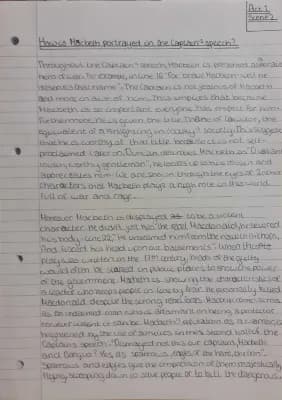 Act 1
Scene 2
How is Macbeth portrayed in the Captain's speech?
Throughout the Captain's speech, Macbeth is presented as a
hero of war. For example, in line 16 "For brave Macbeth well he
deserves that name". The Captain is not jealous of Macbeth
and more in awe of him. This implies that
Macbeth is so important everyone has respect for him.
Furthermore he is given the title Thane of Cawdor, the
equivalent of a knighthood in today's society. This
that he is worthy of that title because it is not self
proclaimed. Later on, Duncan describes Macbeth as "O valiant
cousin, worthy gentleman", he looks up to his cousin and
appreciates him. We are shown through the eyes of 2 other
characters that Macbeth plays a high role in this world
full of war and rage.
Moreover Macbeth is displayed to be a violent
character. He didn't just kill "the real Macdonald, he severed
his body - line 22," He unseamed him from the nave to th' chops,
And fixed his head upon our battlements". When the
play was written in the 17th century, heads of the guilty
would often be placed on public places to show the power
of the government. Macbeth is showing the characteristics of
a leader who keeps people in line by fear. He personally killed
Macdonald despite the strong
as an untamed man who is adamant on being a protector
no matter violent or humble. Macbeth's reputation as a
heightened by the use of similes in the second half of the
Captain's speech. "Dismayed not this our captains, Macbeth
and Banquo? Yes, as sparrows, eagles, or the hare, the lion".
Sparrows and eagles give the comparison of them majestically
flying, swooping down to save people or to kill the dangerous